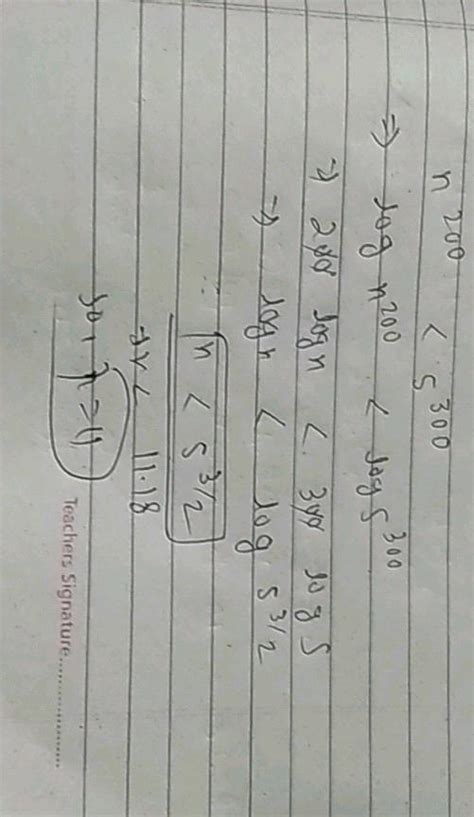 n^200 < 5^300
⇒ log n^200 < log 5^300
⇒ 200 log n < 300 log 5
⇒ log n < log 5^3/2
n < 5^3/2
→ n < 11.18
so, n = 11.
Teachers Signature.....................